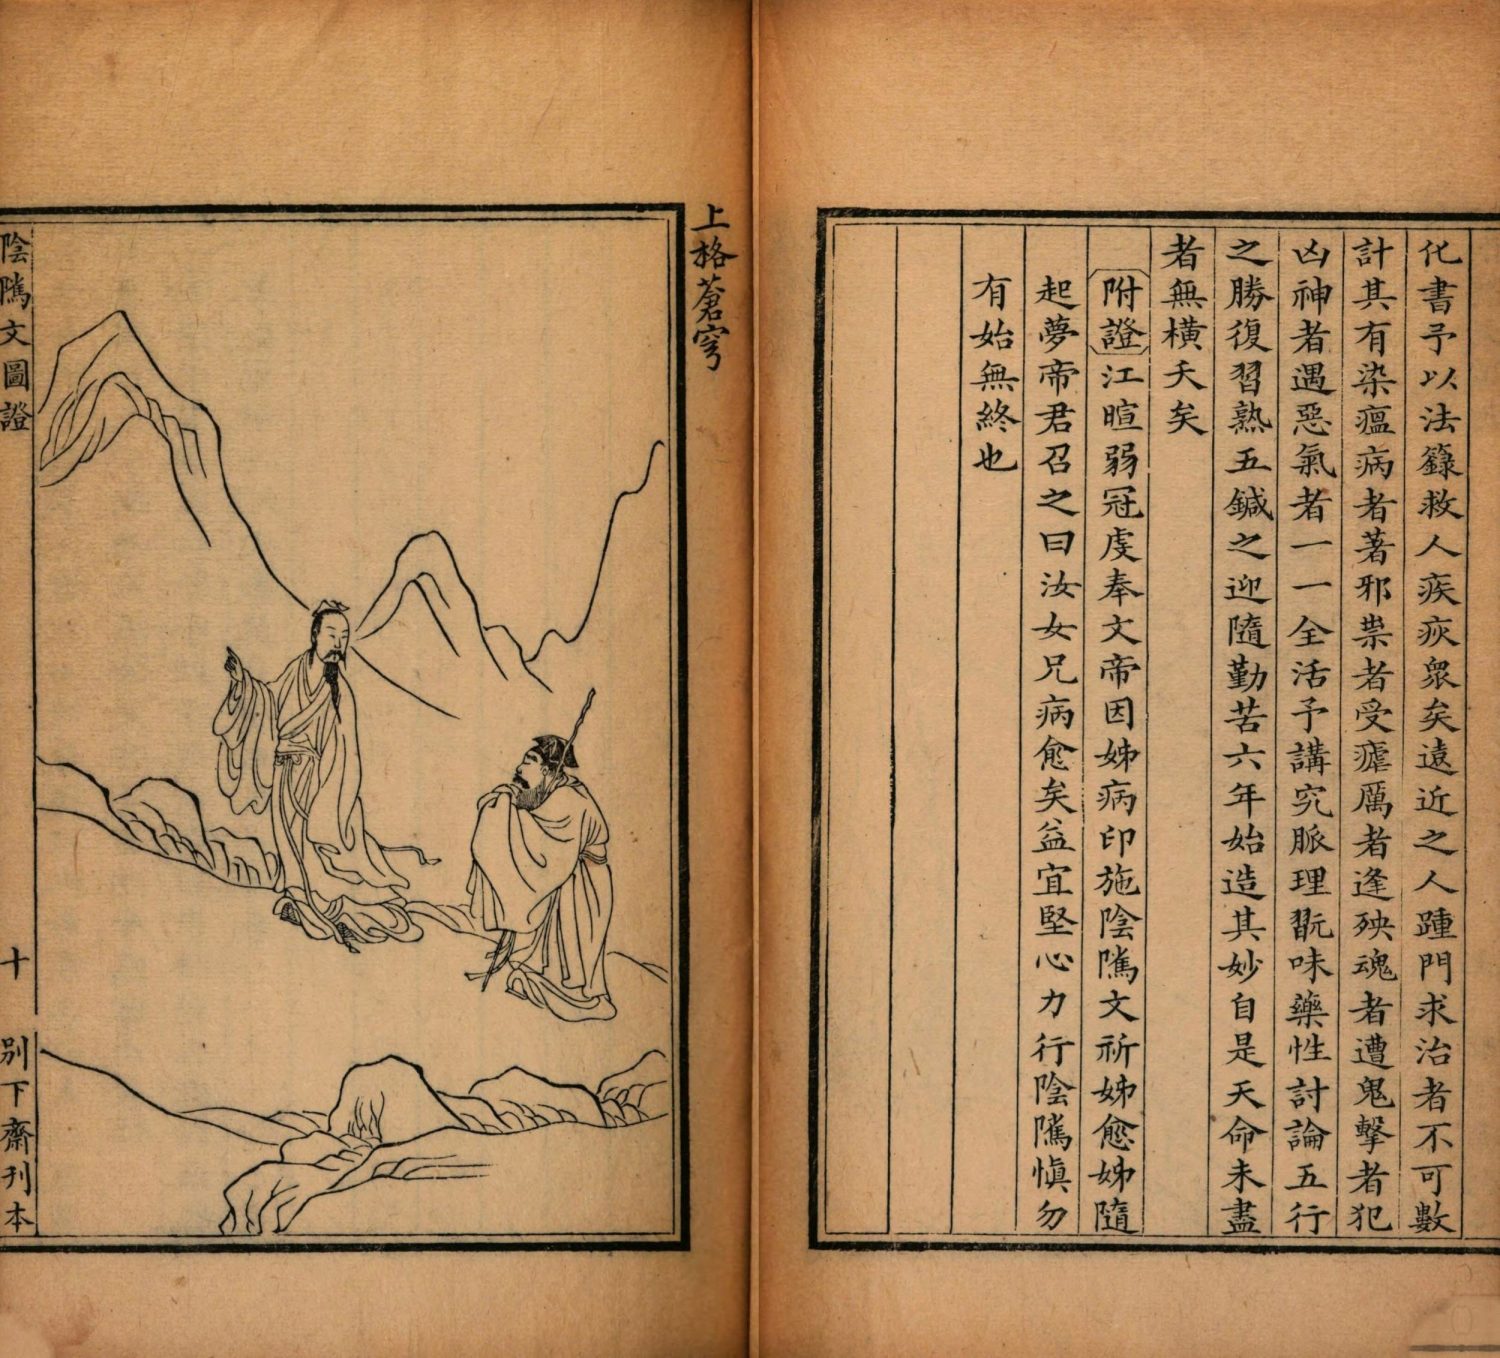 化書予以法籙救人疾疢眾矣遠近之人踵門求治者不可數
計其有染瘟病者著邪祟者受瘧厲者逢殃魂者遭鬼擊者犯
凶神者遇惡氣者一一全活予講究脈理翫味藥性討論五行
之勝復習熟五鍼之迎隨勤苦六年始造其妙自是天命未盡
者無橫夭矣
附證江暄弱冠虔奉文帝因姊病印施陰隲文祈姊愈姊隨
起夢帝君召之曰汝女兄病愈矣益宜堅心力行陰隲慎勿
有始無終也
上格蒼穹
陰隲文圖證
十
別下齋刊本